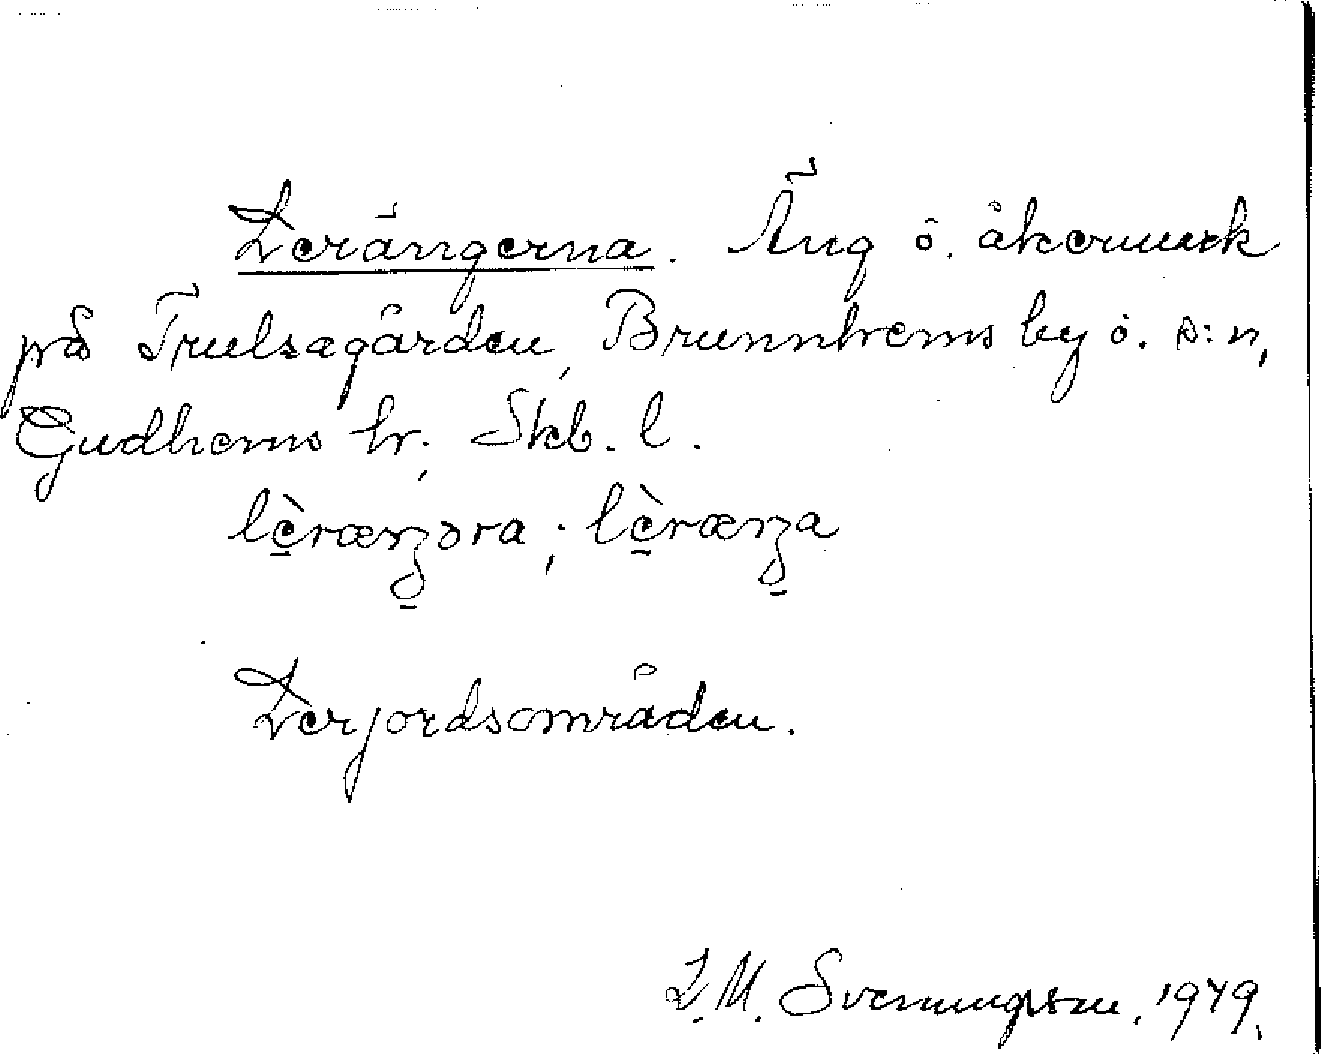 Lerängerna. Äng o. åkermark
på Trulsagården, Brunnhems by o. s:n,
Gudhems hr, Skb. l.
lèræŋʒəra ; lèræŋʒa
Lerjordsområden.
L. M. Svenungsson, 1949.